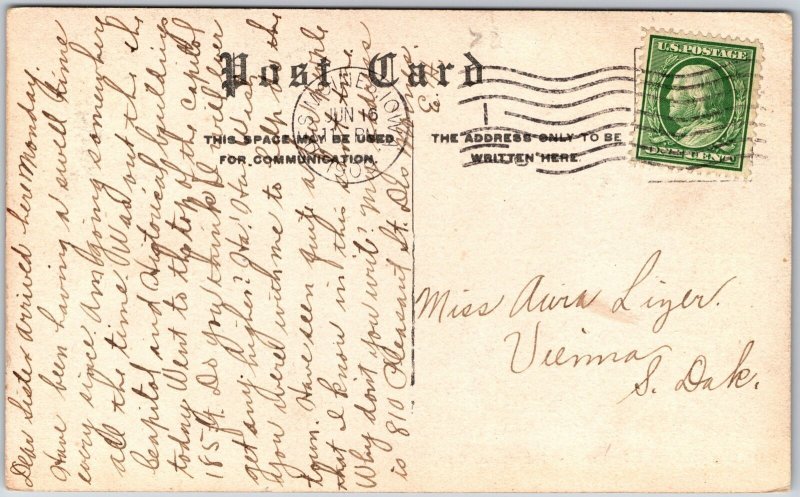 Post Card
THIS SPACE MAY BE USED
FOR COMMUNICATION.
THE ADDRESS ONLY TO BE
WRITTEN HERE
U.S. POSTAGE
ONE CENT
DES MOINES IOWA
JUN 16
Dear Sister arrived here Monday.
Have been having a swell time
every since. Am going somewhere
all the time. Was out the the
capitol and Historical buildings
today. Went to the top of the capitol
185 ft. Do you think I will ever
get any higher? Ha! Ha! Wish
you were with me to help the
town. Have seen quite a few people
that I know in this town.
Why don't you write? My address
is 810 Pleasant St. Des Moines
Miss Aura Lizer.
Vienna
S. Dak.